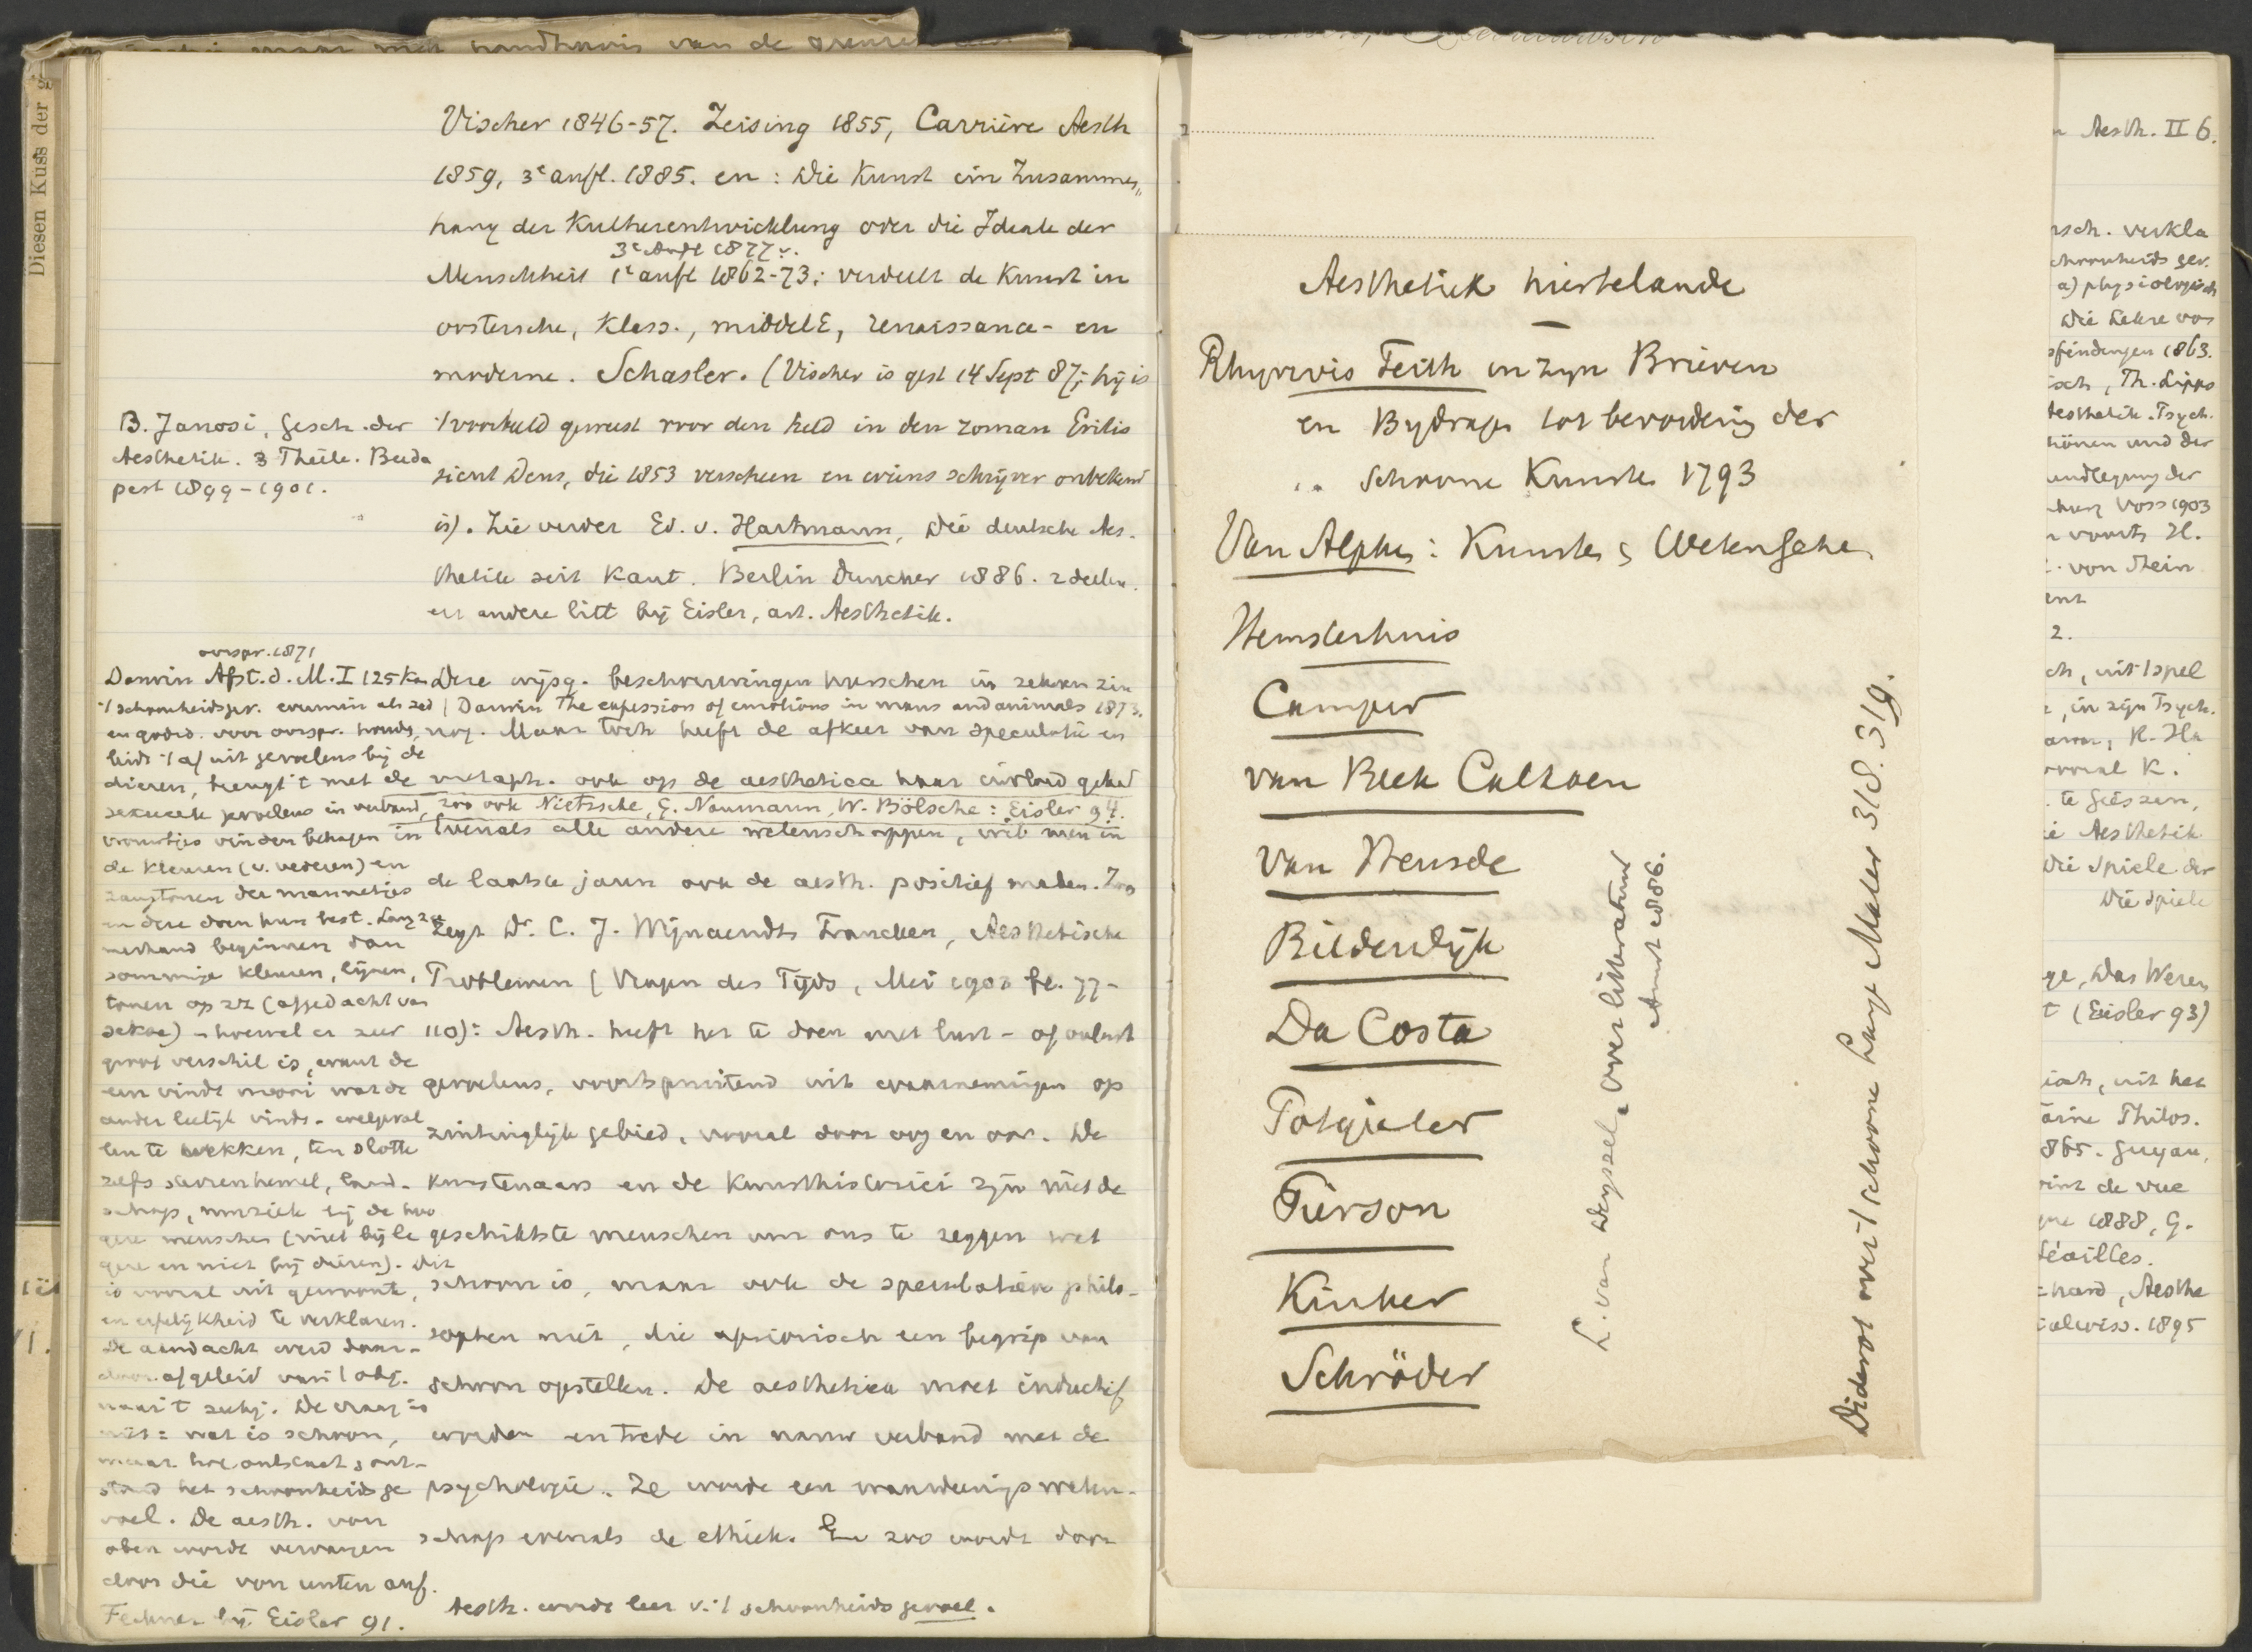 Diesen Kuss der
handhavis van de grenzen
Vischer 1846-57. Zeising 1855, Carrière Aesth
1859, 3e aufl. 1885. en: Die Kunst im Zusammen„
hang der Kulturentwicklung oder die Ideale der
3e Aufl 1877 v.
Menschheit 1e aufl 1862-73: verdeelt de Kunst in
oostersche, Klass., middelE, renaissance- en
moderne. Schasler. (Vischer is gest 14 Sept 87; hij is
't voorbeeld geweest voor den held in den roman Eritis
sicut Deus, die 1853 verscheen en wiens schrijver onbekend
is). Zie verder Ed. v. Hartmann, Die deutsche Aes-
thetik seit Kant. Berlin Duncker 1886. 2 deelen.
en andere litt bij Eisler, art. Aesthetik.
B. Janosi, Gesch. der
Aesthetik. 3 Theile. Buda
pest 1899-1901.
Deze wijsg. beschouwingen hadden in zekeren zin
Darwin The expression of emotions in man and animals 1873.
nog. Maar toch heeft de afkeer van speculatie en
metaph. ook op de aesthetica haar invloed gehad
zoo ook Nietzsche, G. Naumann, W. Bölsche: Eisler 94.
Evenals alle andere wetenschappen, wil men in
de laatste jaren ook de aesth. positief maken. Zoo
zegt Dr. C. J. Wijnaendts Francken, Aesthetische
Problemen (Vragen des Tijds, Mei 1903 bl. 77-
110): Aesth. heeft het te doen met lust- of onlust
gevoelens, voortspruitend uit waarnemingen op
zintuiglijk gebied, vooral door oog en oor. De
kunstenaars en de kunsthistorici zijn niet de
geschiktste menschen om ons te zeggen wat
schoon is, maar ook de speculatieve philo-
sophen niet, die apriorisch een begrip van
schoon opstellen. De aesthetica moet inductief
worden en trede in nauw verband met de
psychologie. Ze worde een waardeeringsweten-
schap evenals de ethiek. En zoo wordt door
Aesth. wordt leer v. 't schoonheidsgevoel.
oorspr. 1871
Darwin Afst. d. M. I 125
't schoonheidsgev. evenmin als zed
en godsd. voor oorspr. houdt,
leidt 't af uit gevoelens bij de
dieren, brengt 't met de
sexueele gevoelens in verband,
vrouwtjes vinden behagen in
de kleuren (v. vederen) en
zangtonen der mannetjes
en deze doen hun best. Langza
merhand beginnen dan
sommige kleuren, lijnen,
tonen op zz (afgedacht van
sekse) - hoewel er zeer
groot verschil is, want de
een vindt mooi wat de
ander leelijk vindt - welgeval
len te wekken, ten slotte
zelfs sterrenhemel, land-
schap, muziek bij de hoo
gere menschen (niet bij la
gere en niet bij dieren). Dit
is vooral uit gewoonte,
en erfelijkheid te verklaren.
De aandacht werd daar-
door afgeleid van 't obj.
naar 't subj. De vraag is
niet: wat is schoon,
maar hoe ontstaat & ont-
stond het schoonheidsge
voel. De aesth. von
oben wordt vervangen
door die von unten auf.
Fechner bij Eisler 91.
Aesthetiek hiertelande
Rhijnvis Feith in zyn Brieven
en Bydrage tot bevordering der
schoone Kunsten 1793
Van Alphen: Kunsten & Wetensche
Hemsterhuis
Camper
van Beek Calkoen
van Heusde
Bilderdijk
Da Costa
Potgieter
Pierson
Kinker
Schröder
L. van Deyssel, over litteratuur
Amst 1886.
Diderot over 't schoone Lange Mater 318. 319.
Aesth. II 6.
sch. verkla
choonheids gev.
a) physiologisch
Die Lehre von
pfindungen 1863.
isch, Th. Lipps
Aesthetik. Psych.
hönen und der
undlegung der
burg Voss 1903
voorts H.
von Stein
ent
2.
ch, uit 't spel
in zijn Psych.
K.
te Giessen,
ie Aesthetik
Die Spiele der
Die Spiele
ge, Das Wesen
t (Eisler 93)
isch, uit het
Philos.
865. Guyau,
oint de vue
que 1888, G.
Séailles.
hard, Aesthe
ialwiss. 1895